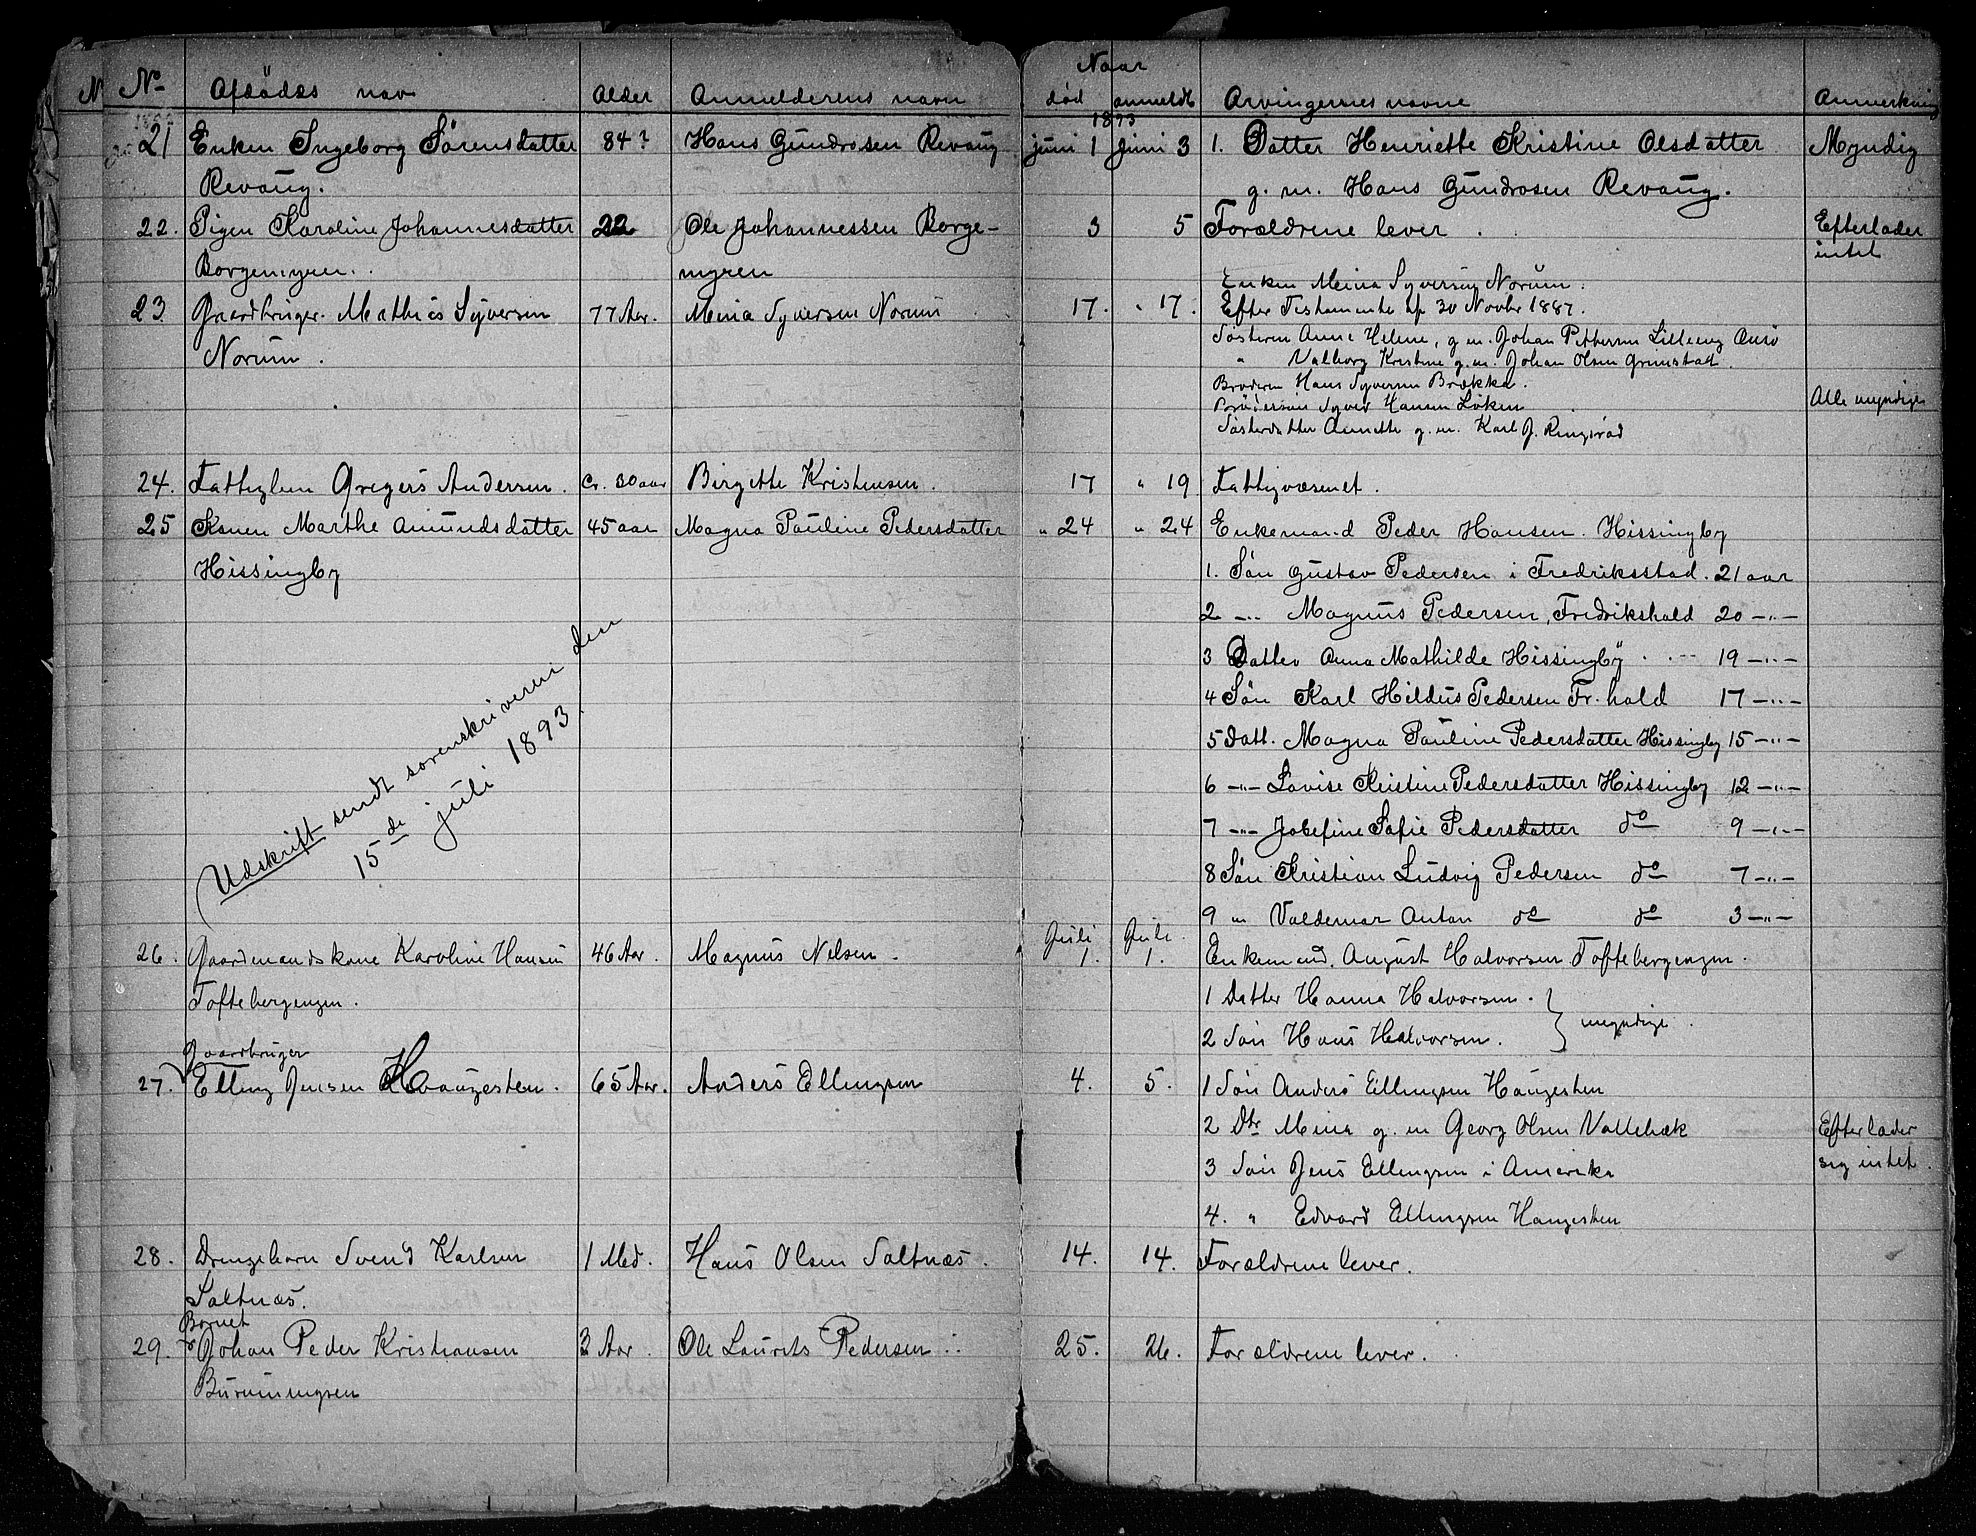 No Afdödes navn Alder Anmelderens navn Naar
död anmeldt Arvingernes navne Anmerkning
1893
21 Enken Ingeborg Sörensdatter 84? Hans Gundrosen Revaug juni 1 juni 3 1. Datter Henriette Kristine Olsdatter Myndig
Revaug. g. m. Hans Gundrosen Revaug.
22. Pigen Karoline Johannesdatter 22 Ole Johannessen Borge- 3 5 Forældrene lever. Efterlader
Borgemyren. myren intet
Enken Meina Syversen Norum.
23 Gaardbruger Mathias Syversen 77 Aar. Mina Syversen Norum 17. " 17. Efter Testamente af 30 Novbr 1887.
Norum. Søsteren Anne Helene, g. m. Johan Pettersen Lilleeng Onsö
" Valborg Kristine g. m. Johan Olsen Grimstad.
Broderen Hans Syversen Brække.
Brodersön Syver Hansen Löken Alle myndige
Søsterdatter Annette g. m. Karl J. Ringsröd
24. Fattiglem Gregers Andersen. cr. 80 aar Birgitte Kristensen. 17 " 19 Fattigvæsenet.
25 Konen Marthe Amundsdatter 45 aar Magna Pauline Pedersdatter " 24 " 24 Enkemand Peder Hansen. Hissingby
Hissingby 1. Sön Gustav Pedersen i Fredriksstad. 21 aar
2 -"- Magnus Pedersen, Fredrikshald 20 -"-
3 Datter Anna Mathilde Hissingby 19 -"-
4 Sön Karl Hildus Pedersen Fr.hald 17 -"-
5 Datt. Magna Pauline Pedersdatter Hissingby 15 -"-
6 -"- Lovise Kristine Pedersdatter Hissingby 12 -"-
7 -"- Josefine Sofie Pedersdatter do 9 -"-
8 Sön Kristian Ludvig Pedersen do 7 -"-
9 " Valdemar Anton do do 3 -"-
Udskrift sendt sorenskriveren den
15de juli 1893.
Juli Juli
26. Gaardmandskone Karoline Hansen 46 Aar. Magnus Nelsen. 1. 1. Enkemand. August Halvorsen Toftebergengen.
Toftebergengen. 1 Datter Hanna Halvorsen.
2 Sön Hans Halvorsen. } myndige.
Gaardbruger
27. Elling Jensen Haugesten. 65 Aar. Anders Ellingsen 4. 5. 1 Sön Anders Ellingsen Haugesten
2 Dtr Mina g. m Georg Olsen Vallebæk Efterlader
3 Sön Jens Ellingsen i Amerika sig intet.
4. " Edvard Ellingsen Haugesten
28. Drengebarn Svend Karlsen 1 Md. Hans Olsen Saltnæs. 14. 14. Forældrene lever.
Saltnæs.
Barnet
29. Johan Peder Kristiansen 3 Aar. Ole Laurits Pedersen 25. 26. Forældrene lever.